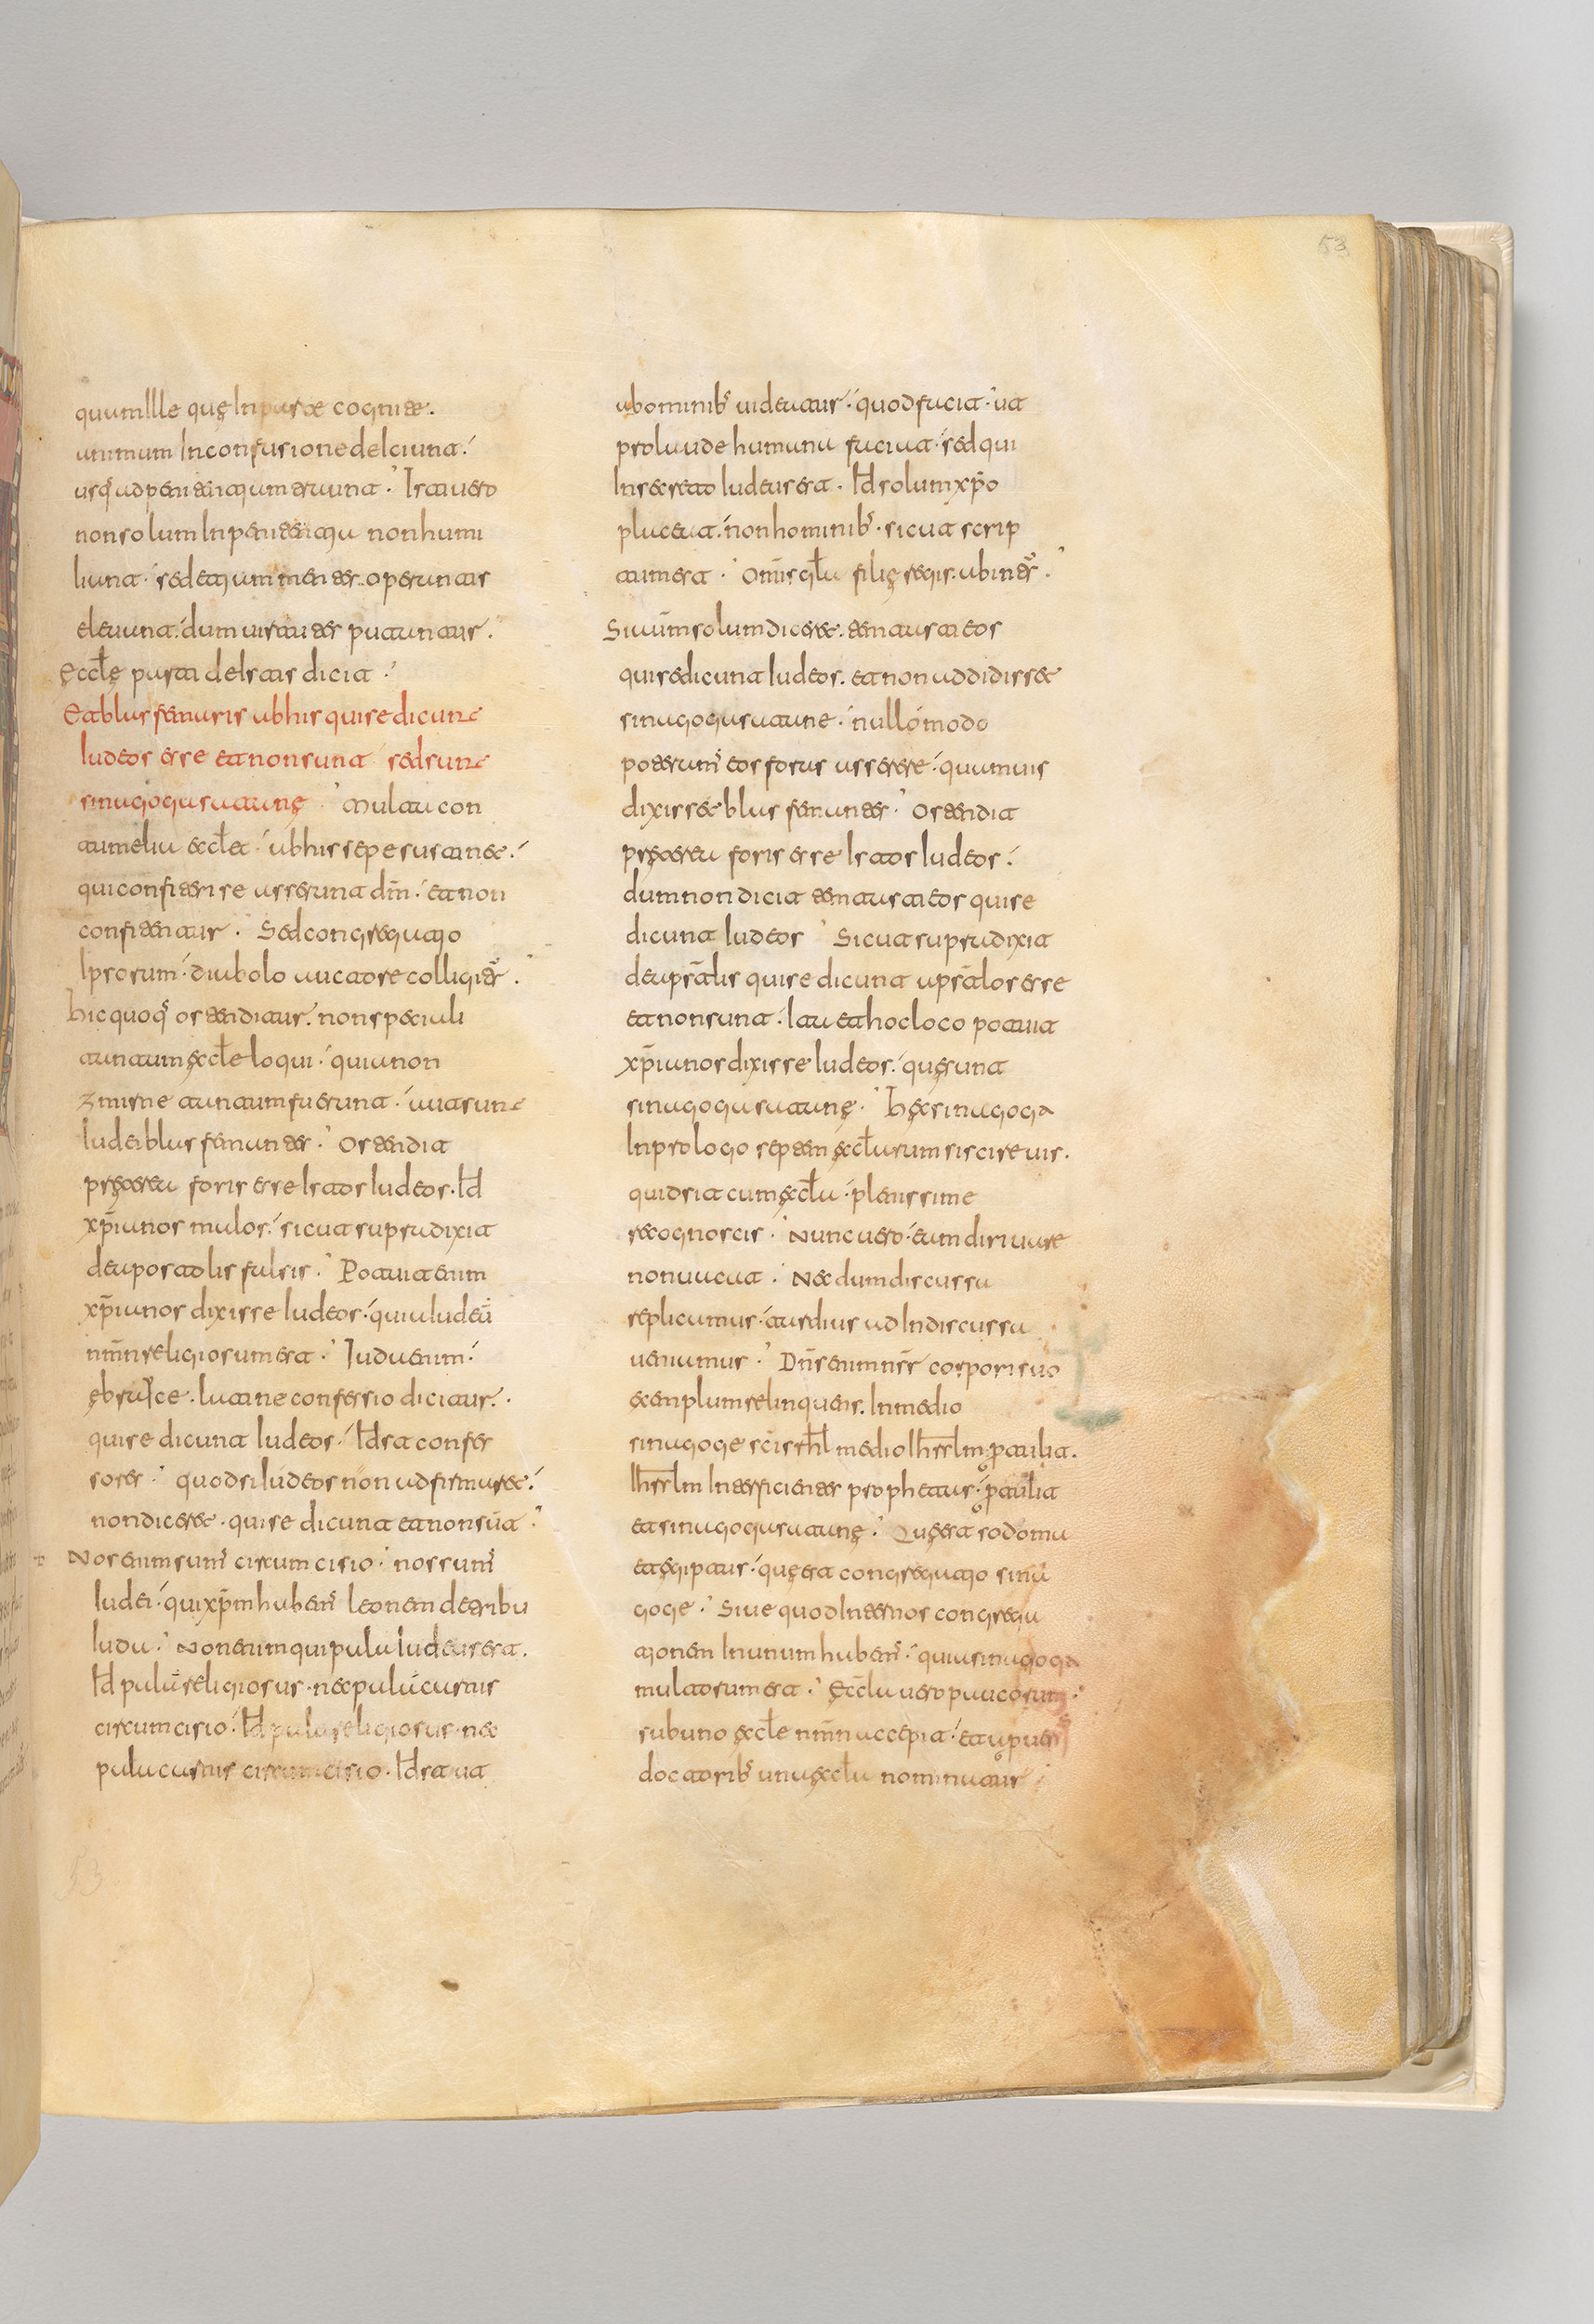 quam Ille quę In parte cognite.
animum In confusione deIciunt.
usq; ad penitentiam Ista uero
non solum In penitentia non humi
liant. sed etiam mentes. operantur
eleuant. dum uirtutes putantur.
Ęccl̄ę parti deIstis dicit.
Et blasfemaris ab his qui se dicunt
Iudeos esse et non sunt sed sunt
sinagoga satanę. Multa con
tumelia eccl̄e. ab his sepe sustinet.
qui confiteri se asserunt dn̄m. et non
confitentur. Sed congregatio
Ipsorum. diabolo auctore colligitr̄.
hic quoq; ostenditur. non speciali
tantum ęccl̄e loqui. quia non
zmirne tantum fuerunt. aut sunt
Iudei blasfemantes. Ostendit
pręterea foris esse Istos Iudeos. Id
xp̄ianos malos. sicut supra dixit
de apostolis falsis. Potuit enim
xp̄ianos dixisse Iudeos. quia Iudeū
nm̄n religiosum est. Iuda enim.
ębraice. latine confessio dicitur.
qui se dicunt Iudeos. Id est confes
sores. quod si Iudeos non adfirmaret.
non diceret. qui se dicunt et non sūt
Nos enim sum' circumcisio. nos sum'
Iudei. qui xp̄m habem' leonem de tribu
Iuda. Non enim qui pala Iudeus est.
Id palā religiosus. nec palā carnis
circumcisio. Id pala religiosus. nec
pala carnis circumcisio. Id est ut
ab ominib; uideatur. quod facit. ut
pro laude humana faciat. sed qui
In secreto Iudeus est. Id solum xp̄o
placeat. non hominib;. sicut scrip
tum est. Omīs gl̄a filię regis. ab intr̄.
Si aūm solum diceret. temtasti eos
qui se dicunt Iudeos. et non addidisset
sinagoga satane. nullo modo
poterum' eos foras asserere. quamuis
dixisset blasfemantes. Ostendit
pręterea foris esse Istos Iudeos.
dum non dicit temtasti eos qui se
dicunt Iudeos Sicut supra dixit
de aps̄tlis qui se dicunt aps̄tlos esse
et non sunt. Ita et hoc loco potuit
xp̄ianos dixisse Iudeos. quę sunt
sinagoga satanę. hęc sinagoga
In prologo septem ęccl̄arum si scire uis.
quid sit cum ęccl̄a. plenissime
recognoscis. Nunc uero. eum dirivare
non uacat. Nec dum discursa
replicamus. tardius ad Indiscussa
ueniamus. Dn̄s enim nsr̄ corporis suo
exemplum relinquens. In medio
sinagoge medio Ihrslm p̊tulit.
Ihrslm Interficientes prophetas. p̊tulit
et sinagoga satanę. Quę est sodoma
et ęgiptus. quę est congregatio sina
goge. Siue quod Inter nos congrega
tionem In unum habem'. quia sinagoga
multorum est. Eccl̄a uero paucorum.
sub uno ęccl̄e nm̄n accepit. et apud
doctorib; una ęccl̄a nominatur
53
53